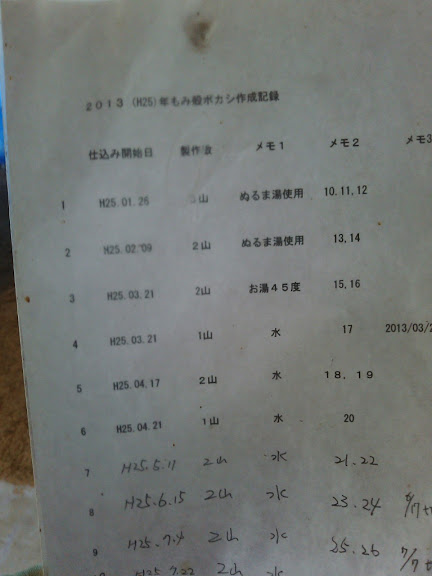 2013 (H25)年もみ殻ボカシ作成記録
仕込み開始日 製作 メモ1 メモ2 メモ3
1 H25.01.26 山 ぬるま湯使用 10,11,12
2 H25.02.09 2山 ぬるま湯使用 13,14
3 H25.03.21 2山 お湯45度 15,16
4 H25.03.21 1山 水 17 2013/03/2
5 H25.04.17 2山 水 18.19
6 H25.04.21 1山 水 20
7 H25.5.11 2山 水 21.22
8 H25.6.15 2山 水 23.24
9 H25.7.4 2山 水 25.26 7/7
H25.7.22 2山 水